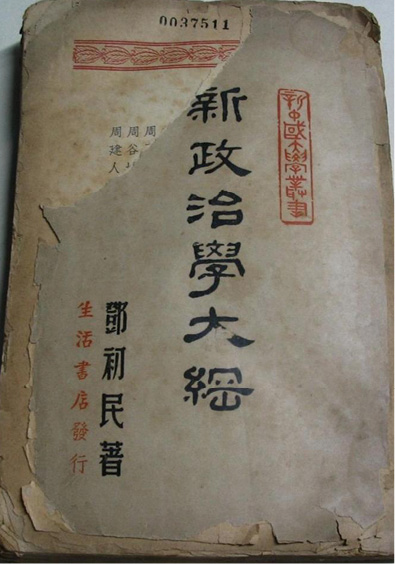 0037511
新中國大學叢書
新政治學大綱
周
周谷
周建人
鄧初民著
生活書店發行